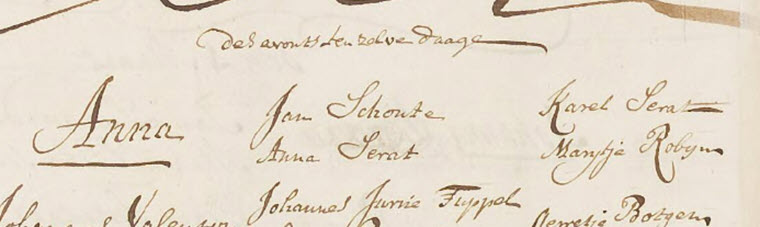 des avonts ten zelve daage
Anna
Jan Schoute
Anna Serat
Karel Serat
Marytje Robyn
Johannes Valentyn
Johannes Jurrie Tuppel
Botgen